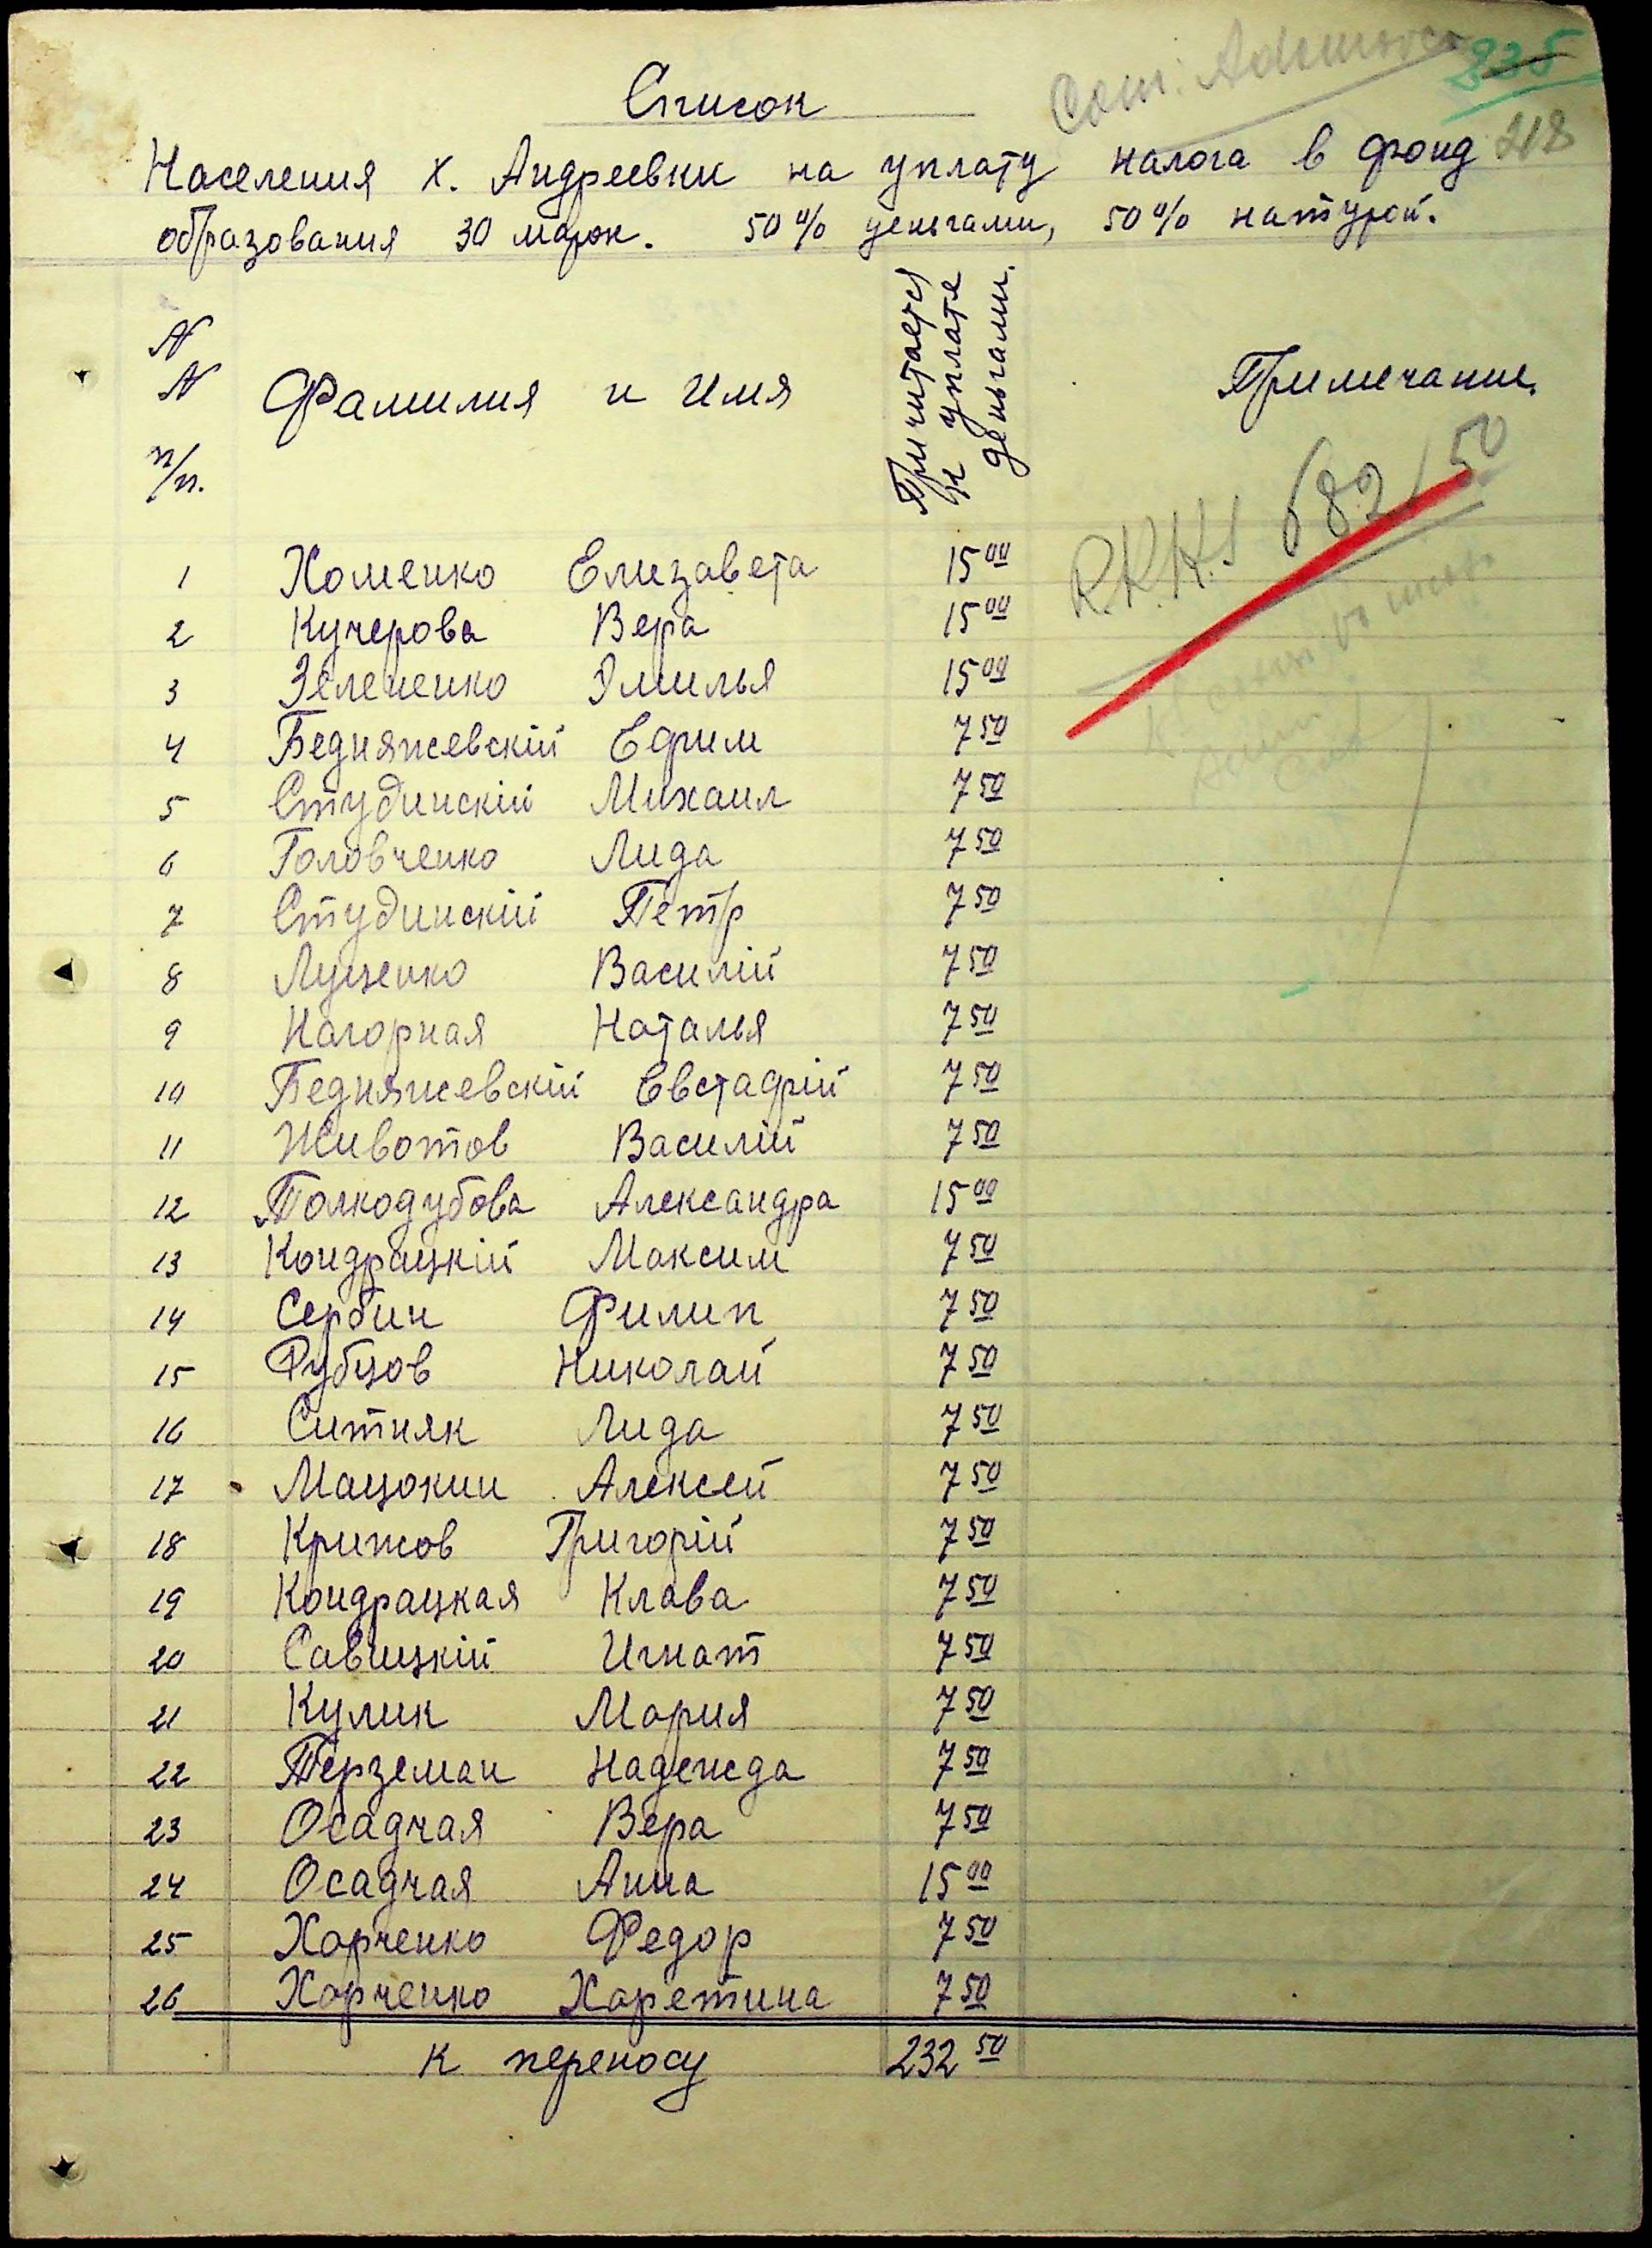 Com. Ademusca
235
Список
218
Населения х. Андреевки на уплату налога в фонд
образования 30 марок. 50% деньгами, 50% натурой.
N N п/п. Фамилия и Имя Причитается к уплате деньгами. Примечание.
R.K.K.S 682,50
1 Хоменко Елизавета 15 00
2 Кучерова Вера 15 00
3 Зелененко Эмилья 15 00
4 Бедняжевскій Ефим 7 50
5 Студинскій Михаил 7 50
6 Головченко Лида 7 50
7 Студинскій Петр 7 50
8 Луценко Василій 7 50
9 Нагорная Наталья 7 50
10 Бедняжевскій Евстафій 7 50
11 Животов Василій 7 50
12 Толкодубова Александра 15 00
13 Кондрацкій Максим 7 50
14 Сербин Филип 7 50
15 Рубцов Николай 7 50
16 Ситняк Лида 7 50
17 Мацокин Алексей 7 50
18 Крижов Григорій 7 50
19 Кондрацкая Клава 7 50
20 Савицкій Игнат 7 50
21 Кулик Мария 7 50
22 Терземан Надежда 7 50
23 Осадчая Вера 7 50
24 Осадчая Анна 15 00
25 Харченко Федор 7 50
26 Харченко Харетина 7 50
К переносу 232 50